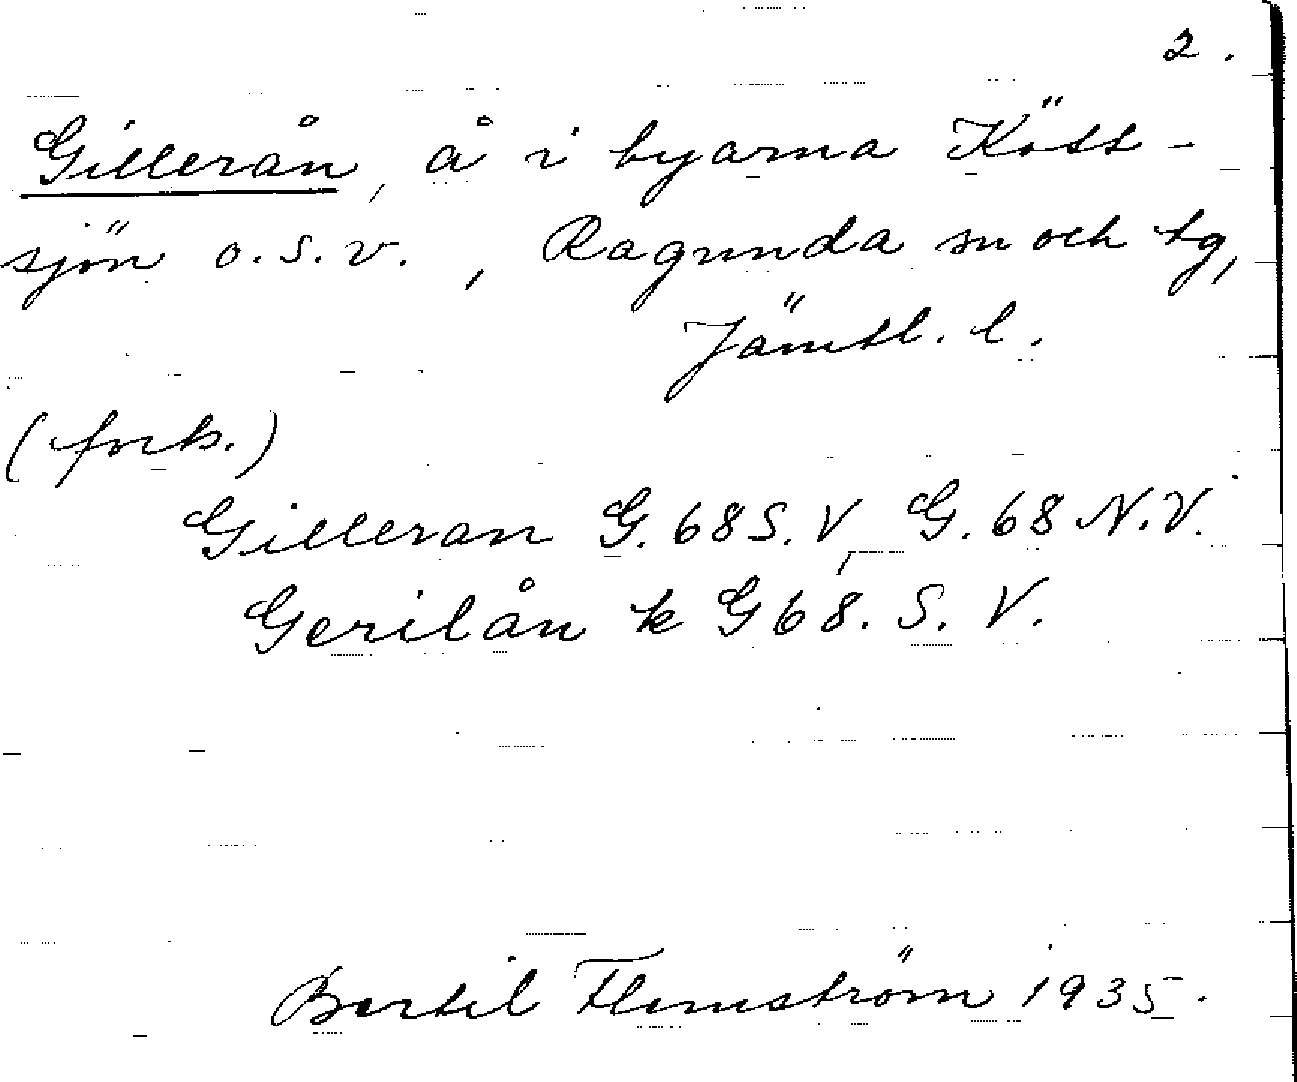 2.
Gillerån, å i byarna Kött-
sjön o.s.v., Ragunda sn och tg,
Jämtl. l.
(forts.)
Gilleran G. 68 S. V, G. 68 N.V.
Gerilån k G 68. S. V.
Bertil Flemström 1935.